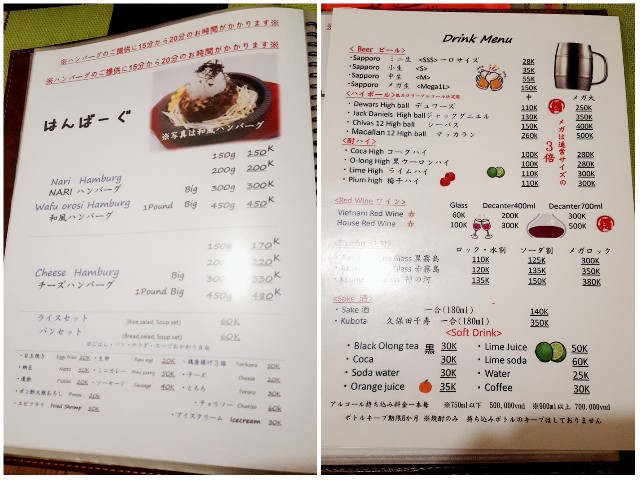 ※ハンバーグのご提供に15分から20分のお時間がかかります※
※ハンバーグのご提供に15分から20分のお時間がかかります※
※写真は和風ハンバーグ
はんばーぐ
150g 150K
Nari Hamburg 200g 200K
NARI ハンバーグ Big 300g 300K
Wafu orosi Hamburg 1Pound Big 450g 450K
和風ハンバーグ
150g 170K
200g 220K
Cheese Hamburg Big 300g 330K
チーズハンバーグ 1Pound Big 450g 480K
ライスセット (Rice,salad, Soup set) 60K
パンセット (Bread,salad, Soup set) 60K
Fried Shrimp 50K
・アイスクリーム Icecream 30K
Drink Menu
< Beer ビール>
・Sapporo ミニ生 <SSS>一口サイズ 28K
・Sapporo 小生 <S> 35K
・Sapporo 中生 <M> 55K
・Sapporo メガ生 <Mega1L> 150K
<ハイボール> 中 メガ大
・Dewars High ball デュワーズ 110K 250K
・Jack Daniels High ball ジャックダニエル 130K 350K
・Chivas 12 High ball シーバス 150K 400K
・Macallan 12 High ball マッカラン 260K 500K
メガは通常サイズの3倍
<酎ハイ>
・Coca High コークハイ 100K 280K
・O-long High 黒ウーロンハイ 100K 280K
・Lime High ライムハイ 110K 300K
・Plum high 梅子ハイ 110K 300K
<Red Wine ワイン> Glass Decanter400ml Decanter700ml
Vietnam Red Wine 赤 60K 200K 300K
House Red Wine 赤 100K 300K 500K
ロック・水割 ソーダ割 メガロック
Glass 黒霧島 110K 125K 300K
Glass 赤霧島 120K 135K 350K
135K 150K 380K
<Sake 酒>
・Sake 酒 一合(180ml) 140K
・Kubota 久保田千寿 一合(180ml) 350K
<Soft Drink>
・Black Olong tea 黒 30K
・Coca 30K
・Soda water 30K
・Orange juice 35K
・Lime Juice 50K
・Lime soda 60K
・Water 25K
・Coffee 30K
アルコール持ち込み料金一本毎 ※750ml以下 500,000vnd ※900ml以上 700,000vnd
ボトルキープ期限6か月 ※焼酎のみ 持ち込みボトルのキープはしておりません